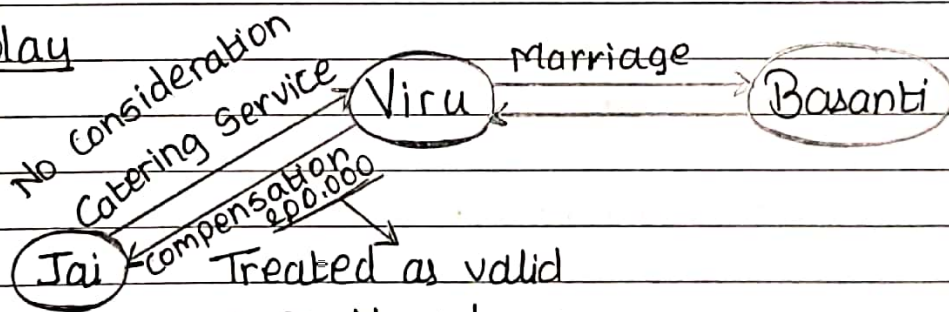 lay
No consideration
Catering Service
Viru
Marriage
Basanti
compensation
200.000
Jai
Treated as valid